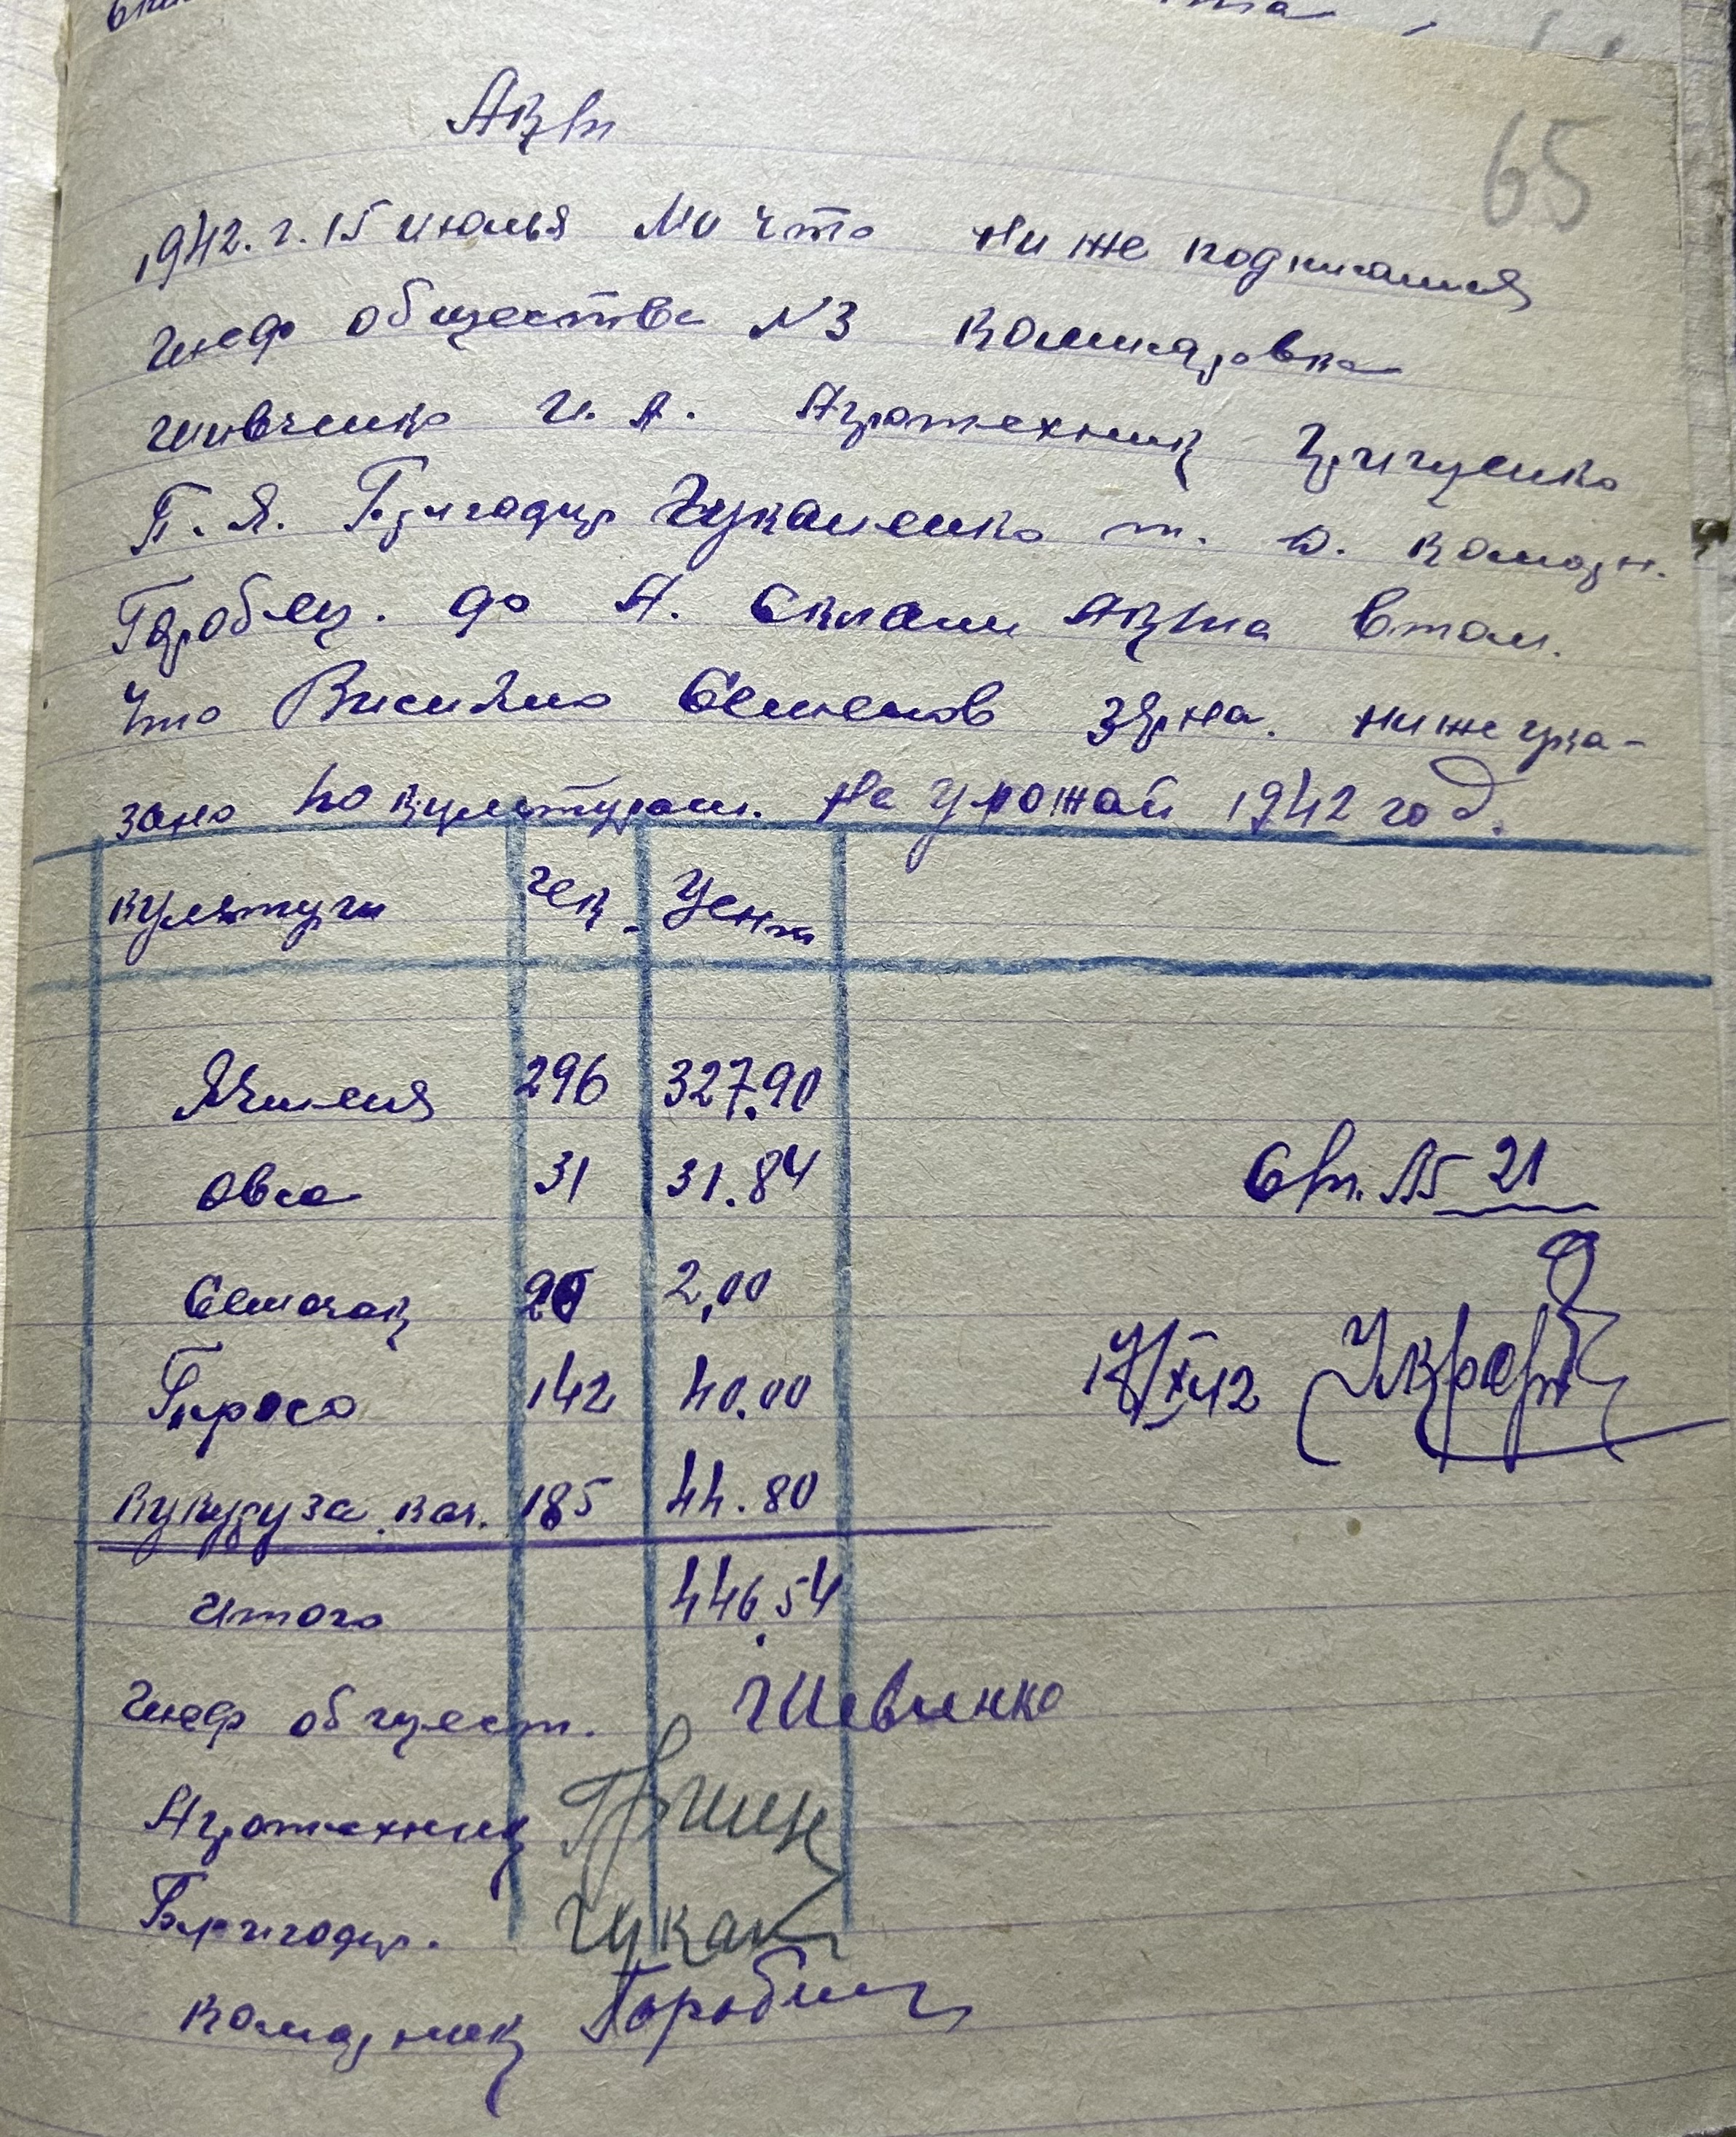 65
Акт
1942. г. 15 июля Ми что Ниже подписания
шеф общества №3 Комисаровка
Шивченко И. А. Агротехник Григуенко
П. Я. Бригадир Чукаленко т. О. Комарн.
Горобец. до А. Склали Акта Втом.
Что Висияно Семенов Зярна. ниже ука-
зано по културам. На урожай 1942 год.
културы Гек. Цент
Ячменя 296 327.90
овса 31 31.84
Семочек 20 2,00
Просо 142 40.00
кукуруза. кач. 185 44.80
итого 446.54
Ст. №5 21
17/XI 42
Шеф общест. Шевченко
Агротехник Грищ
Бригадир. Чукал
комарник Горобец